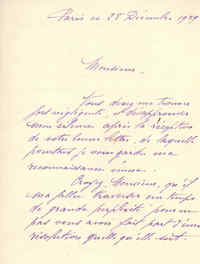 Paris ce 28 Décembre 1929
Monsieur,
Vous devez me trouver
pas négligente, et désapprouver
mon silence après la réception
de votre bonne lettre, de laquelle
pourtant je vous garde ma
reconnaissance émue.
Croyez, Monsieur, qu'il
m'a fallu traverser un temps
de grande perplexité pour ne
pas vous avoir fait part d'une
résolution quelle qu'elle soit.